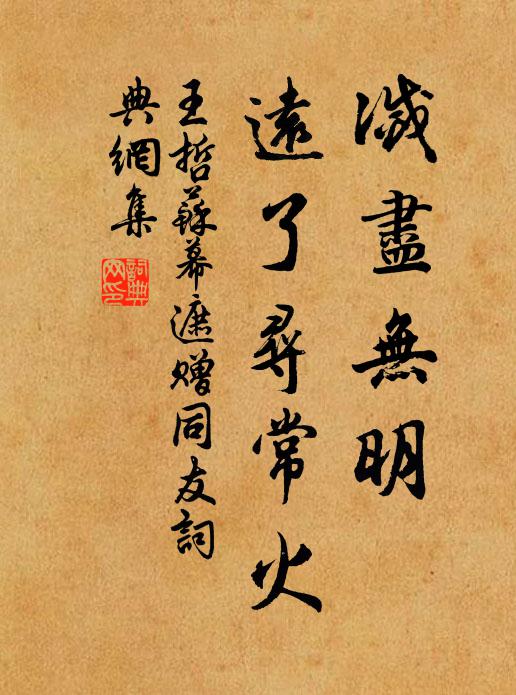 滅盡無明
遠了尋常火
王哲蘇幕遮贈同友詞
典網集
詞典
網印